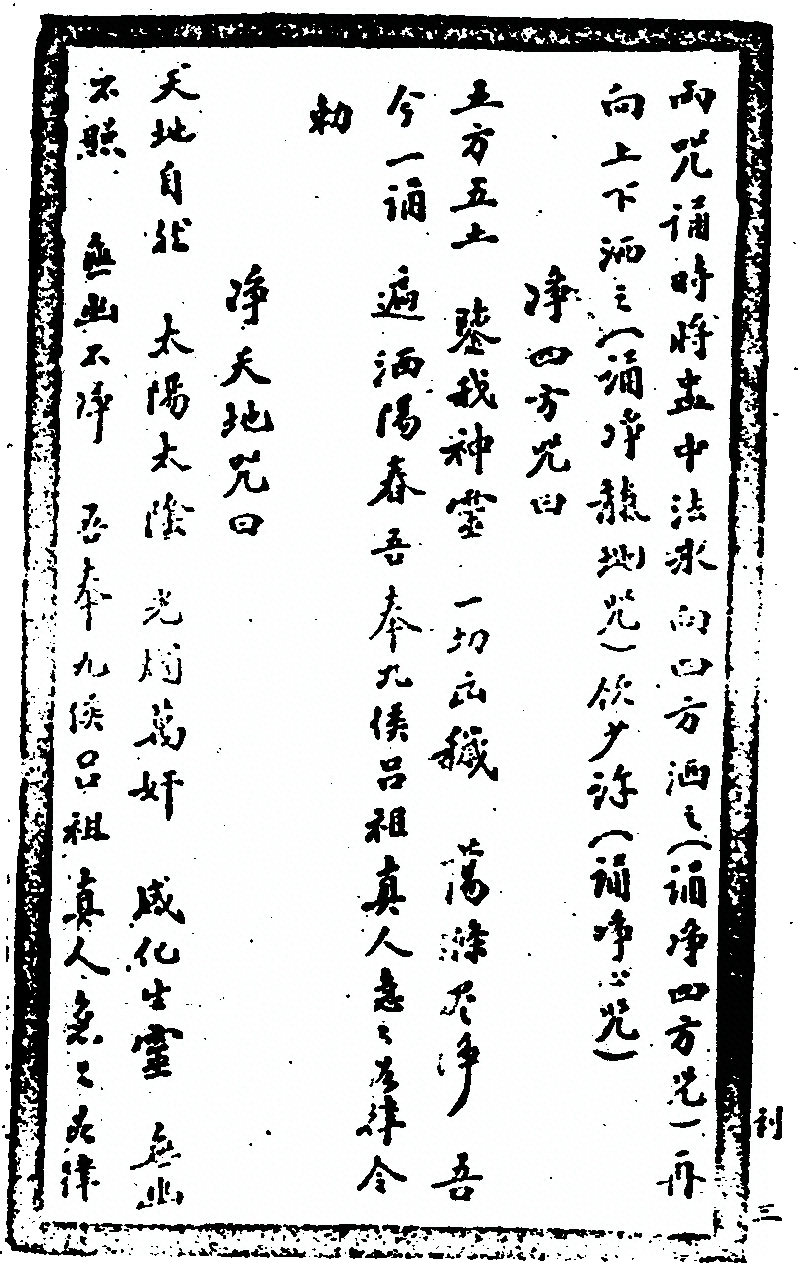 両咒誦時將盅中法水向四方洒之(誦净四方咒)再
向上下洒之(誦净龍地咒)飲少許(誦净心咒)
净四方咒曰
五方五土 鑒我神靈 一切凶穢 蕩滌尽净 吾
今一誦 遍洒陽春吾奉九侯呂祖真人急々如律令
勅
净天地咒曰
天地自然 太陽太陰 光燭萬奸 感化生靈 無幽
不照 無幽不净 吾奉九侯呂祖真人急々如律
刲
三